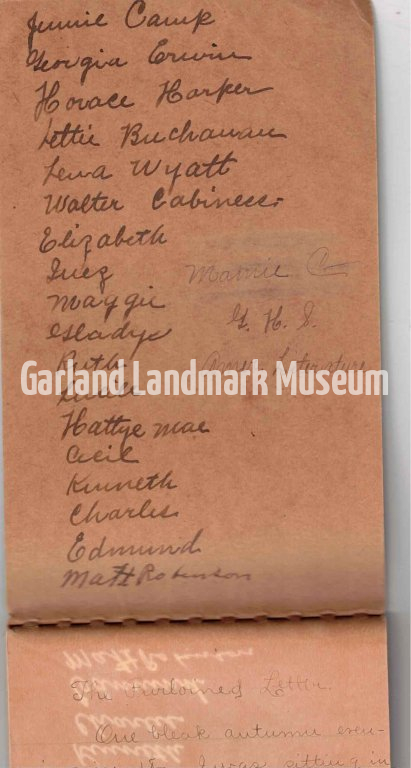 Jennie Camp
Georgia Erwin
Horace Harper
Lettie Buchanan
Lena Wyatt
Walter Cabiness.
Elizabeth
Inez
Mamie C
Maggie
Gladys
G. H. S.
Ruth
Literature
Garland Landmark Museum
Hattye mae
Cecil
Kenneth
Charles
Edmund
Matt Robinson
The Purloined Letter.
One bleak autumn even-
I was sitting in